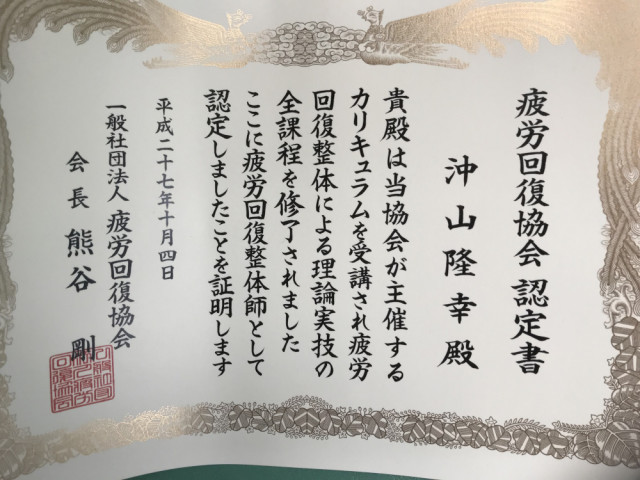 疲労回復協会 認定書
沖山隆幸殿
貴殿は当協会が主催する
カリキュラムを受講され疲労
回復整体による理論実技の
全課程を修了されました
ここに疲労回復整体師として
認定しましたことを証明します
平成二十七年十月四日
一般社団法人 疲労回復協会
会長 熊谷 剛